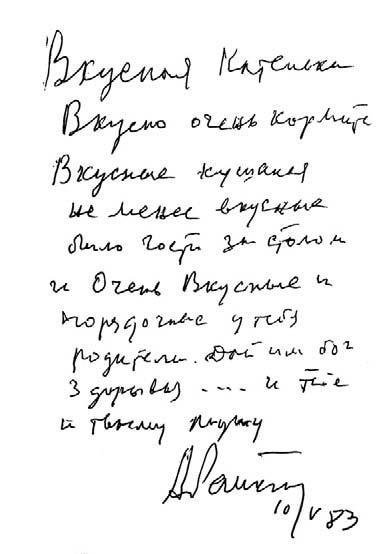 Вкусная Катенька
Вкусно очень кормите
Вкусные кушания
не менее вкусные
были гости за столом
и Очень Вкусные и
порядочные у тебя
родители. Дай им бог
здоровья .... и тебе
и твоему
10/V 83